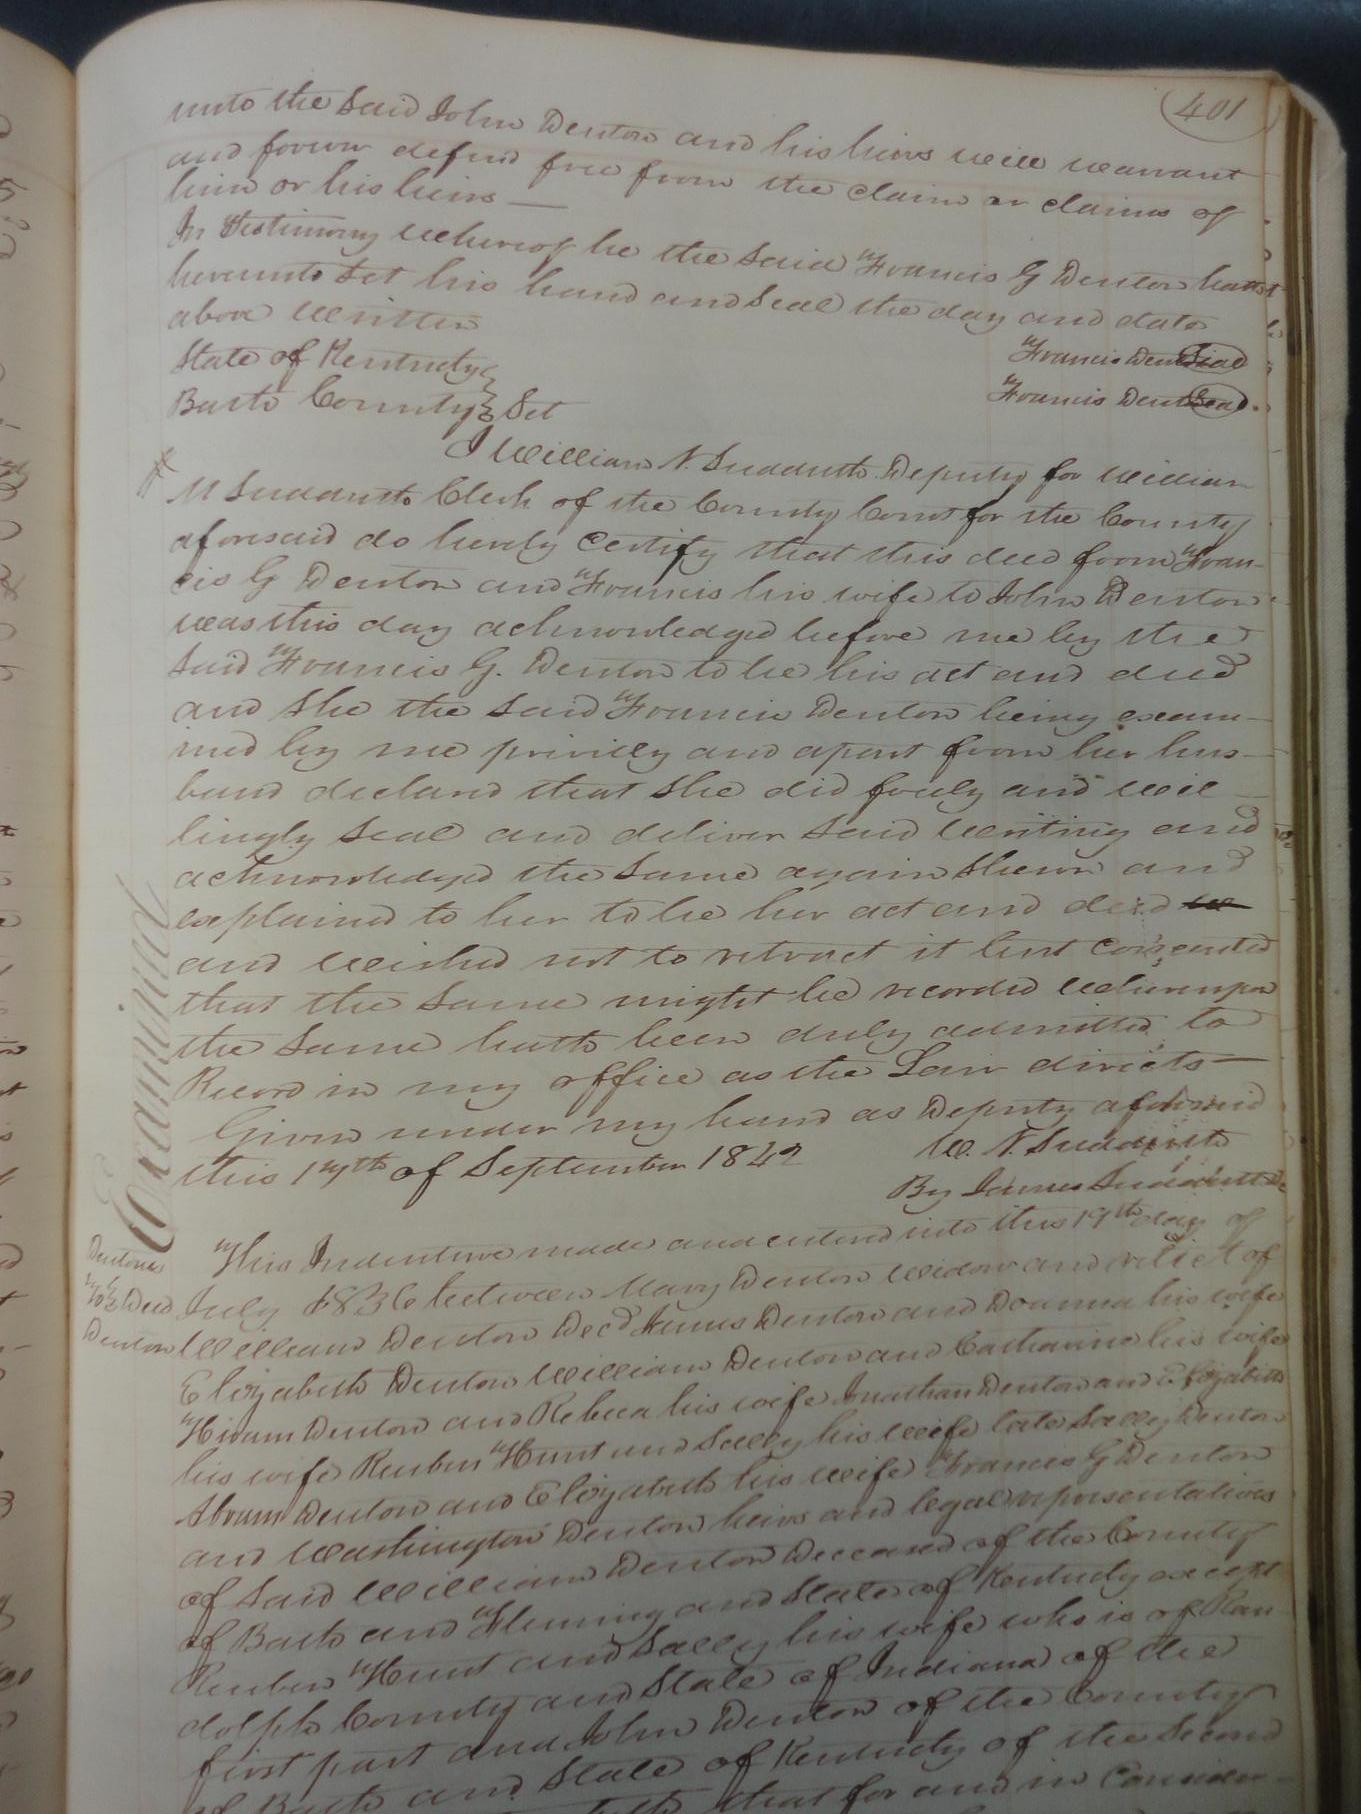 401
unto the said John Denton and his heirs will warrant
and forever defend free from the claim or claims of
him or his heirs —
In Testimony whereof he the said Francis G Denton hath
hereunto set his hand and seal the day and date
above written
Francis Denton Seal
State of Kentucky
Francis Denton Seal
Bath County Sct
I William N. Sudduth Deputy for William
M Sudduth Clerk of the County Court for the County
aforesaid do hereby certify that this deed from Fran-
cis G Denton and Francis his wife to John Denton
was this day acknowledged before me by the
said Francis G. Denton to be his act and deed
and she the said Francis Denton being exam-
ined by me privily and apart from her hus-
band declared that she did freely and wil-
lingly seal and deliver said writing and
acknowledged the same again shewn and
explained to her to be her act and deed
and wished not to retract it but consented
that the same might be recorded whereupon
the same hath been duly admitted to
Record in my office as the Law directs —
Given under my hand as Deputy aforesaid
this 17th of September 1842
W. N. Sudduth
By James Sudduth
Examined
This Indenture made and entered into this 19th day of
Dentons
July 1836 between Mary Denton widow and relict of
To Deed
William Denton Decd James Denton and Joanna his wife
Denton
Elizabeth Denton William Denton and Catharine his wife
Hiram Denton and Rebecca his wife Jonathan Denton and Elizabeth
his wife Reuben Hunt and Sally his wife late Sally Denton
Abram Denton and Elizabeth his wife Francis G Denton
and Washington Denton heirs and legal representatives
of said William Denton Deceased of the County
of Bath and Fleming and State of Kentucky except
Reuben Hunt and Sally his wife who is of Ran
dolph County and State of Indiana of the
first part and John Denton of the County
of Bath and State of Kentucky of the second
that for and in Consider-